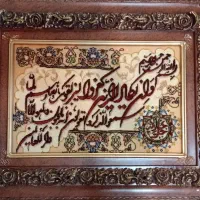 بسم الله الرحمن الرحیم
وان یکاد الذین کفروا لیزلقونک بابصارهم
لما سمعوا الذکر و یقولون انه لمجنون
و ما هو الا ذکر للعالمین